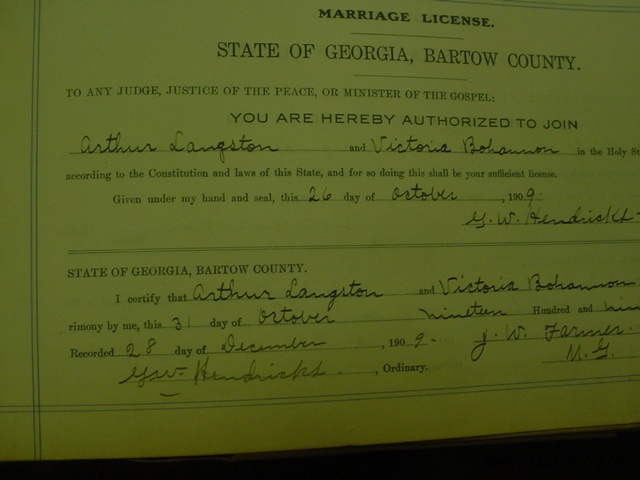 MARRIAGE LICENSE.
STATE OF GEORGIA, BARTOW COUNTY.
TO ANY JUDGE, JUSTICE OF THE PEACE, OR MINISTER OF THE GOSPEL:
YOU ARE HEREBY AUTHORIZED TO JOIN
Arthur Langston and Victoria Bohannon in the Holy St
according to the Constitution and laws of this State, and for so doing this shall be your sufficient license.
Given under my hand and seal, this 26 day of October, 1909.
G. W. Hendricks
STATE OF GEORGIA, BARTOW COUNTY.
I certify that Arthur Langston and Victoria Bohannon
rimony by me, this 31 day of October nineteen Hundred and nin
Recorded 28 day of December, 1909. J. W. Farmer
M. G.
G. W. Hendricks, Ordinary.